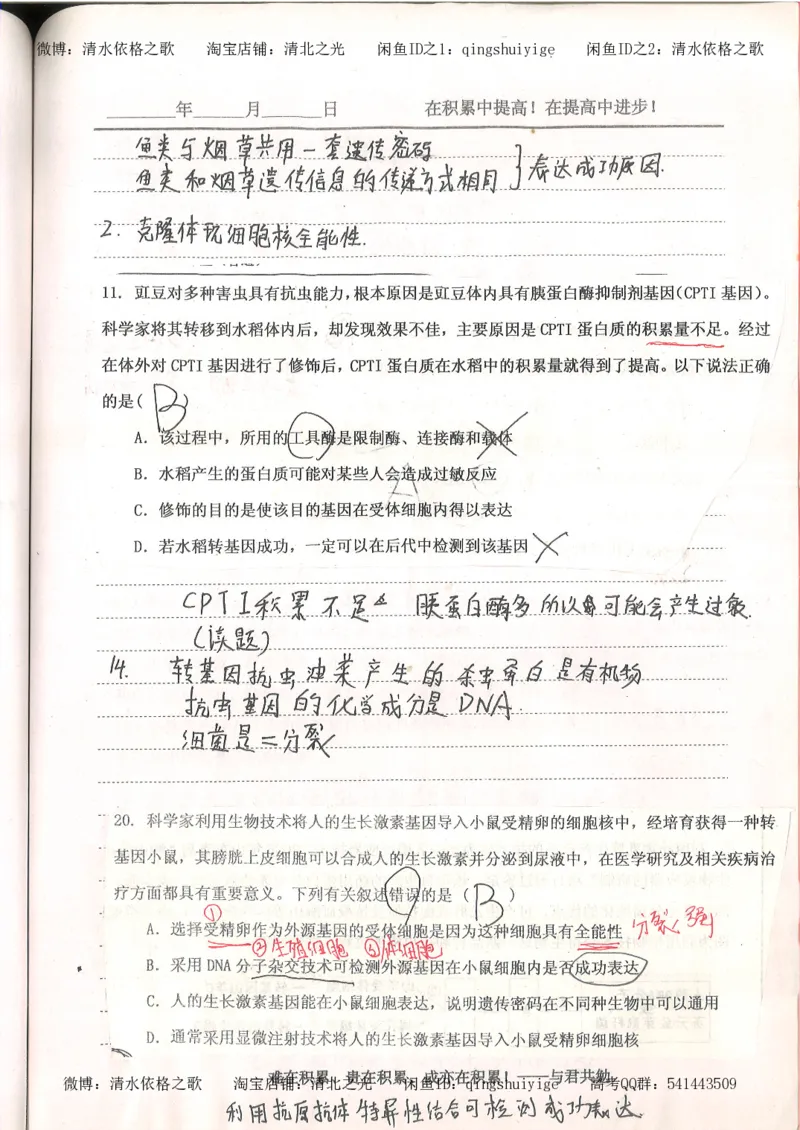 微博：清水依格之歌 淘宝店铺：清北之光 闲鱼ID之1：qingshuiyige 闲鱼ID之2：清水依格之歌
年 月 日 在积累中提高！在提高中进步！
鱼类与烟草共用一套遗传密码
鱼类和烟草遗传信息的传递方式相同 } 表达成功原因.
2. 克隆体现细胞核全能性.
11. 豇豆对多种害虫具有抗虫能力，根本原因是豇豆体内具有胰蛋白酶抑制剂基因（CPTI 基因）。
科学家将其转移到水稻体内后，却发现效果不佳，主要原因是 CPTI 蛋白质的积累量不足。经过
在体外对 CPTI 基因进行了修饰后，CPTI 蛋白质在水稻中的积累量就得到了提高。以下说法正确
的是( B )
A. 该过程中，所用的工具酶是限制酶、连接酶和载体
B. 水稻产生的蛋白质可能对某些人会造成过敏反应
C. 修饰的目的是使该目的基因在受体细胞内得以表达
D. 若水稻转基因成功，一定可以在后代中检测到该基因
CPTI积累不足 胰蛋白酶多 所以 可能会产生过敏.
(读题)
14. 转基因抗虫油菜产生的杀虫蛋白是有机物
抗虫基因的化学成分是DNA.
细菌是二分裂
20. 科学家利用生物技术将人的生长激素基因导入小鼠受精卵的细胞核中，经培育获得一种转
基因小鼠，其膀胱上皮细胞可以合成人的生长激素并分泌到尿液中，在医学研究及相关疾病治
疗方面都具有重要意义。下列有关叙述错误的是（ B ）
①
A. 选择受精卵作为外源基因的受体细胞是因为这种细胞具有全能性 分裂 强
②生殖细胞 ③体细胞
B. 采用 DNA 分子杂交技术可检测外源基因在小鼠细胞内是否成功表达
C. 人的生长激素基因能在小鼠细胞表达，说明遗传密码在不同种生物中可以通用
D. 通常采用显微注射技术将人的生长激素基因导入小鼠受精卵细胞核
难在积累，贵在积累，成亦在积累！——与君共勉
微博：清水依格之歌 淘宝店铺：清北之光 闲鱼ID：qingshuiyige 高考QQ群：541443509
利用抗原抗体特异性结合可检测成功表达